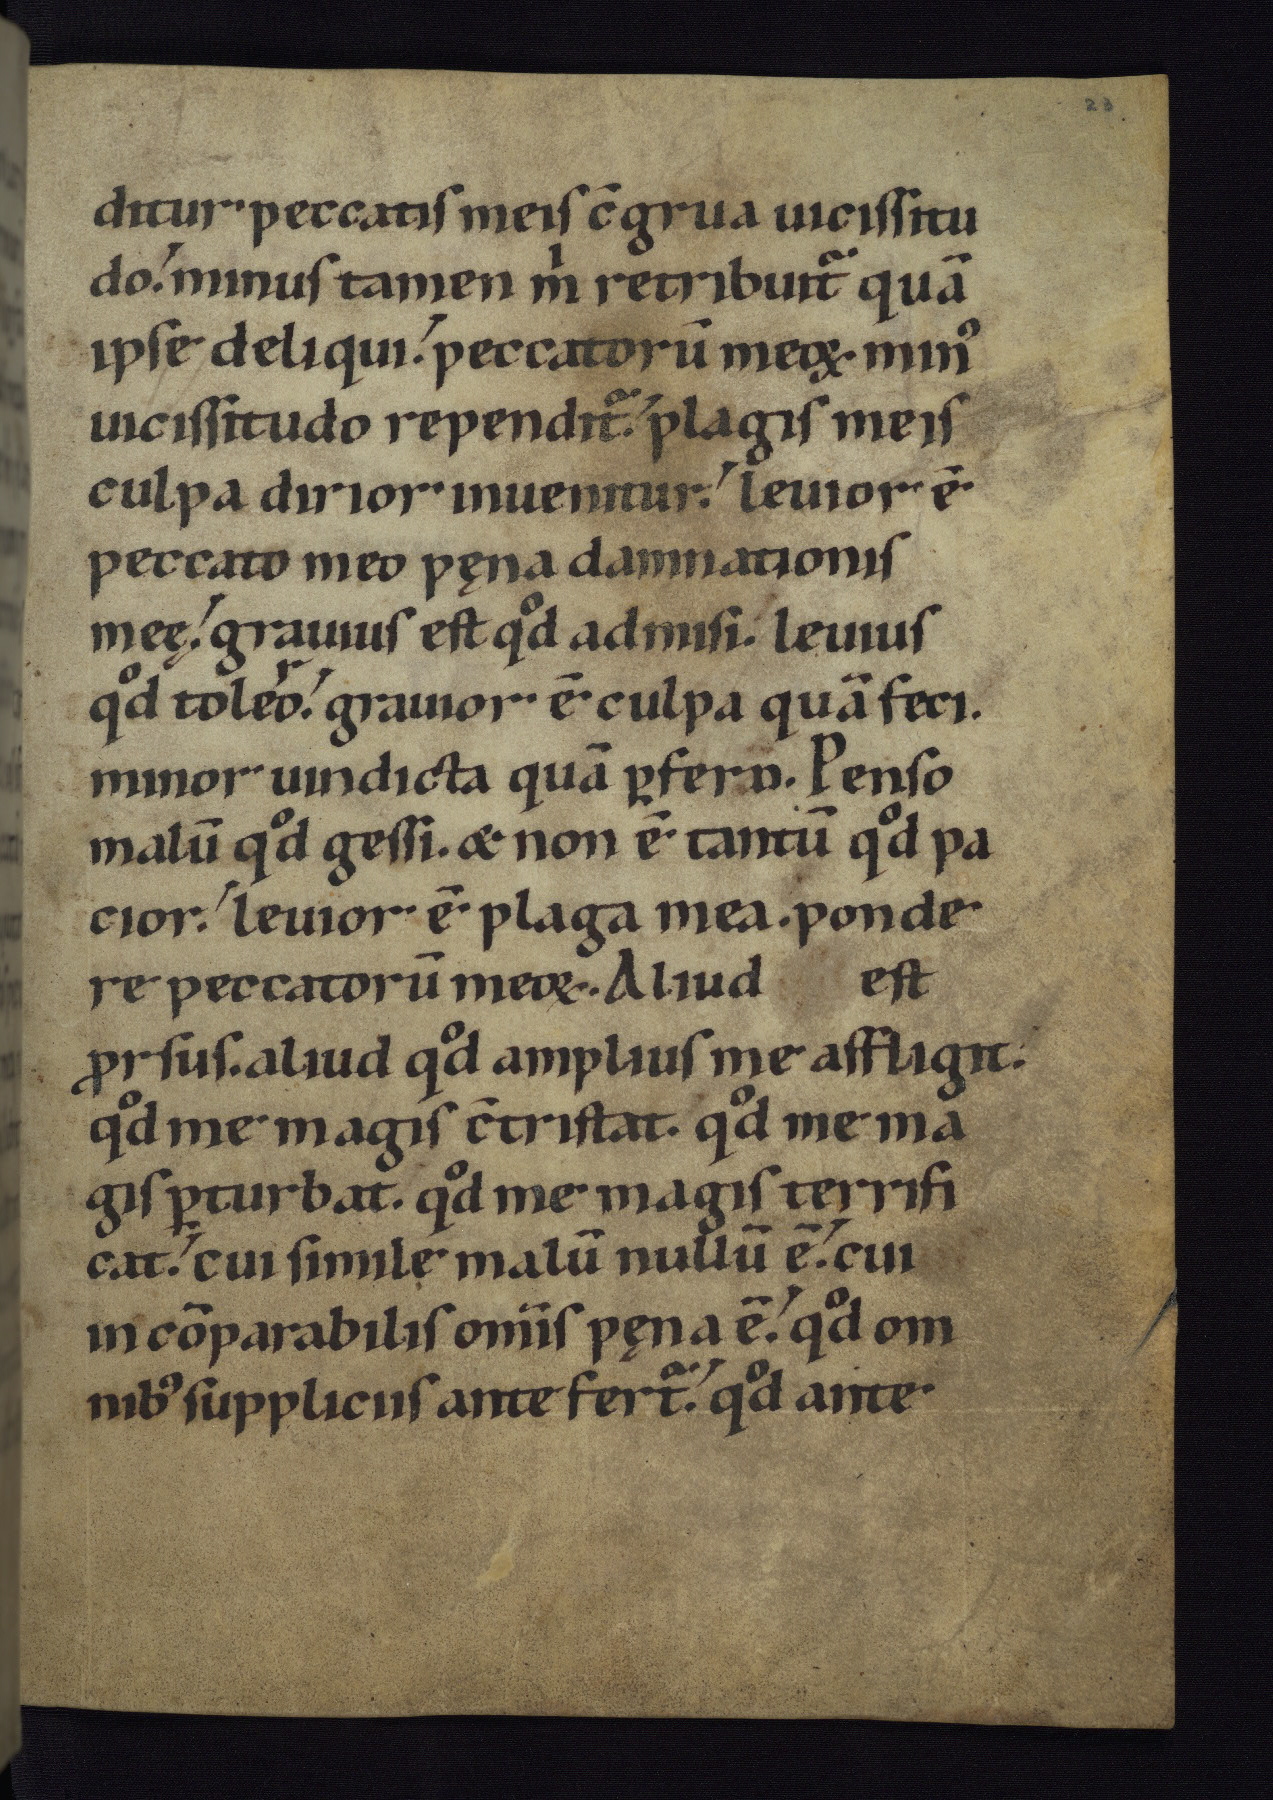 23
ditur. peccatis meis c̄grua uicissitu
do. minus tamen m̍ retribuit᷑ quā
ipse deliqui. peccatorū meoꝝ minꝰ
uicissitudo rependit᷑. plagis meis
culpa dirior inuenitur. leuior ē
peccato meo pęna damnationis
meę. grauius est qͦd admisi. leuius
qͦd tolero. grauior ē culpa quā feci.
minor uindicta quā ꝑfero. Penso
malū qͦd gessi. & non ē tantū qͦd pa
cior. leuior ē plaga mea. ponde
re peccatorū meoꝝ. Aliud est
ꝓrsus. aliud qͦd amplius me affligit.
qͦd me magis c̄tristat. qͦd me ma
gis ꝑturbat. qͦd me magis terrifi
cat. cui simile malū nullū ē. cui
incōparabilis om̄is pęna ē. qͦd om
nibꝰ suppliciis ante fert᷑. qͦd ante